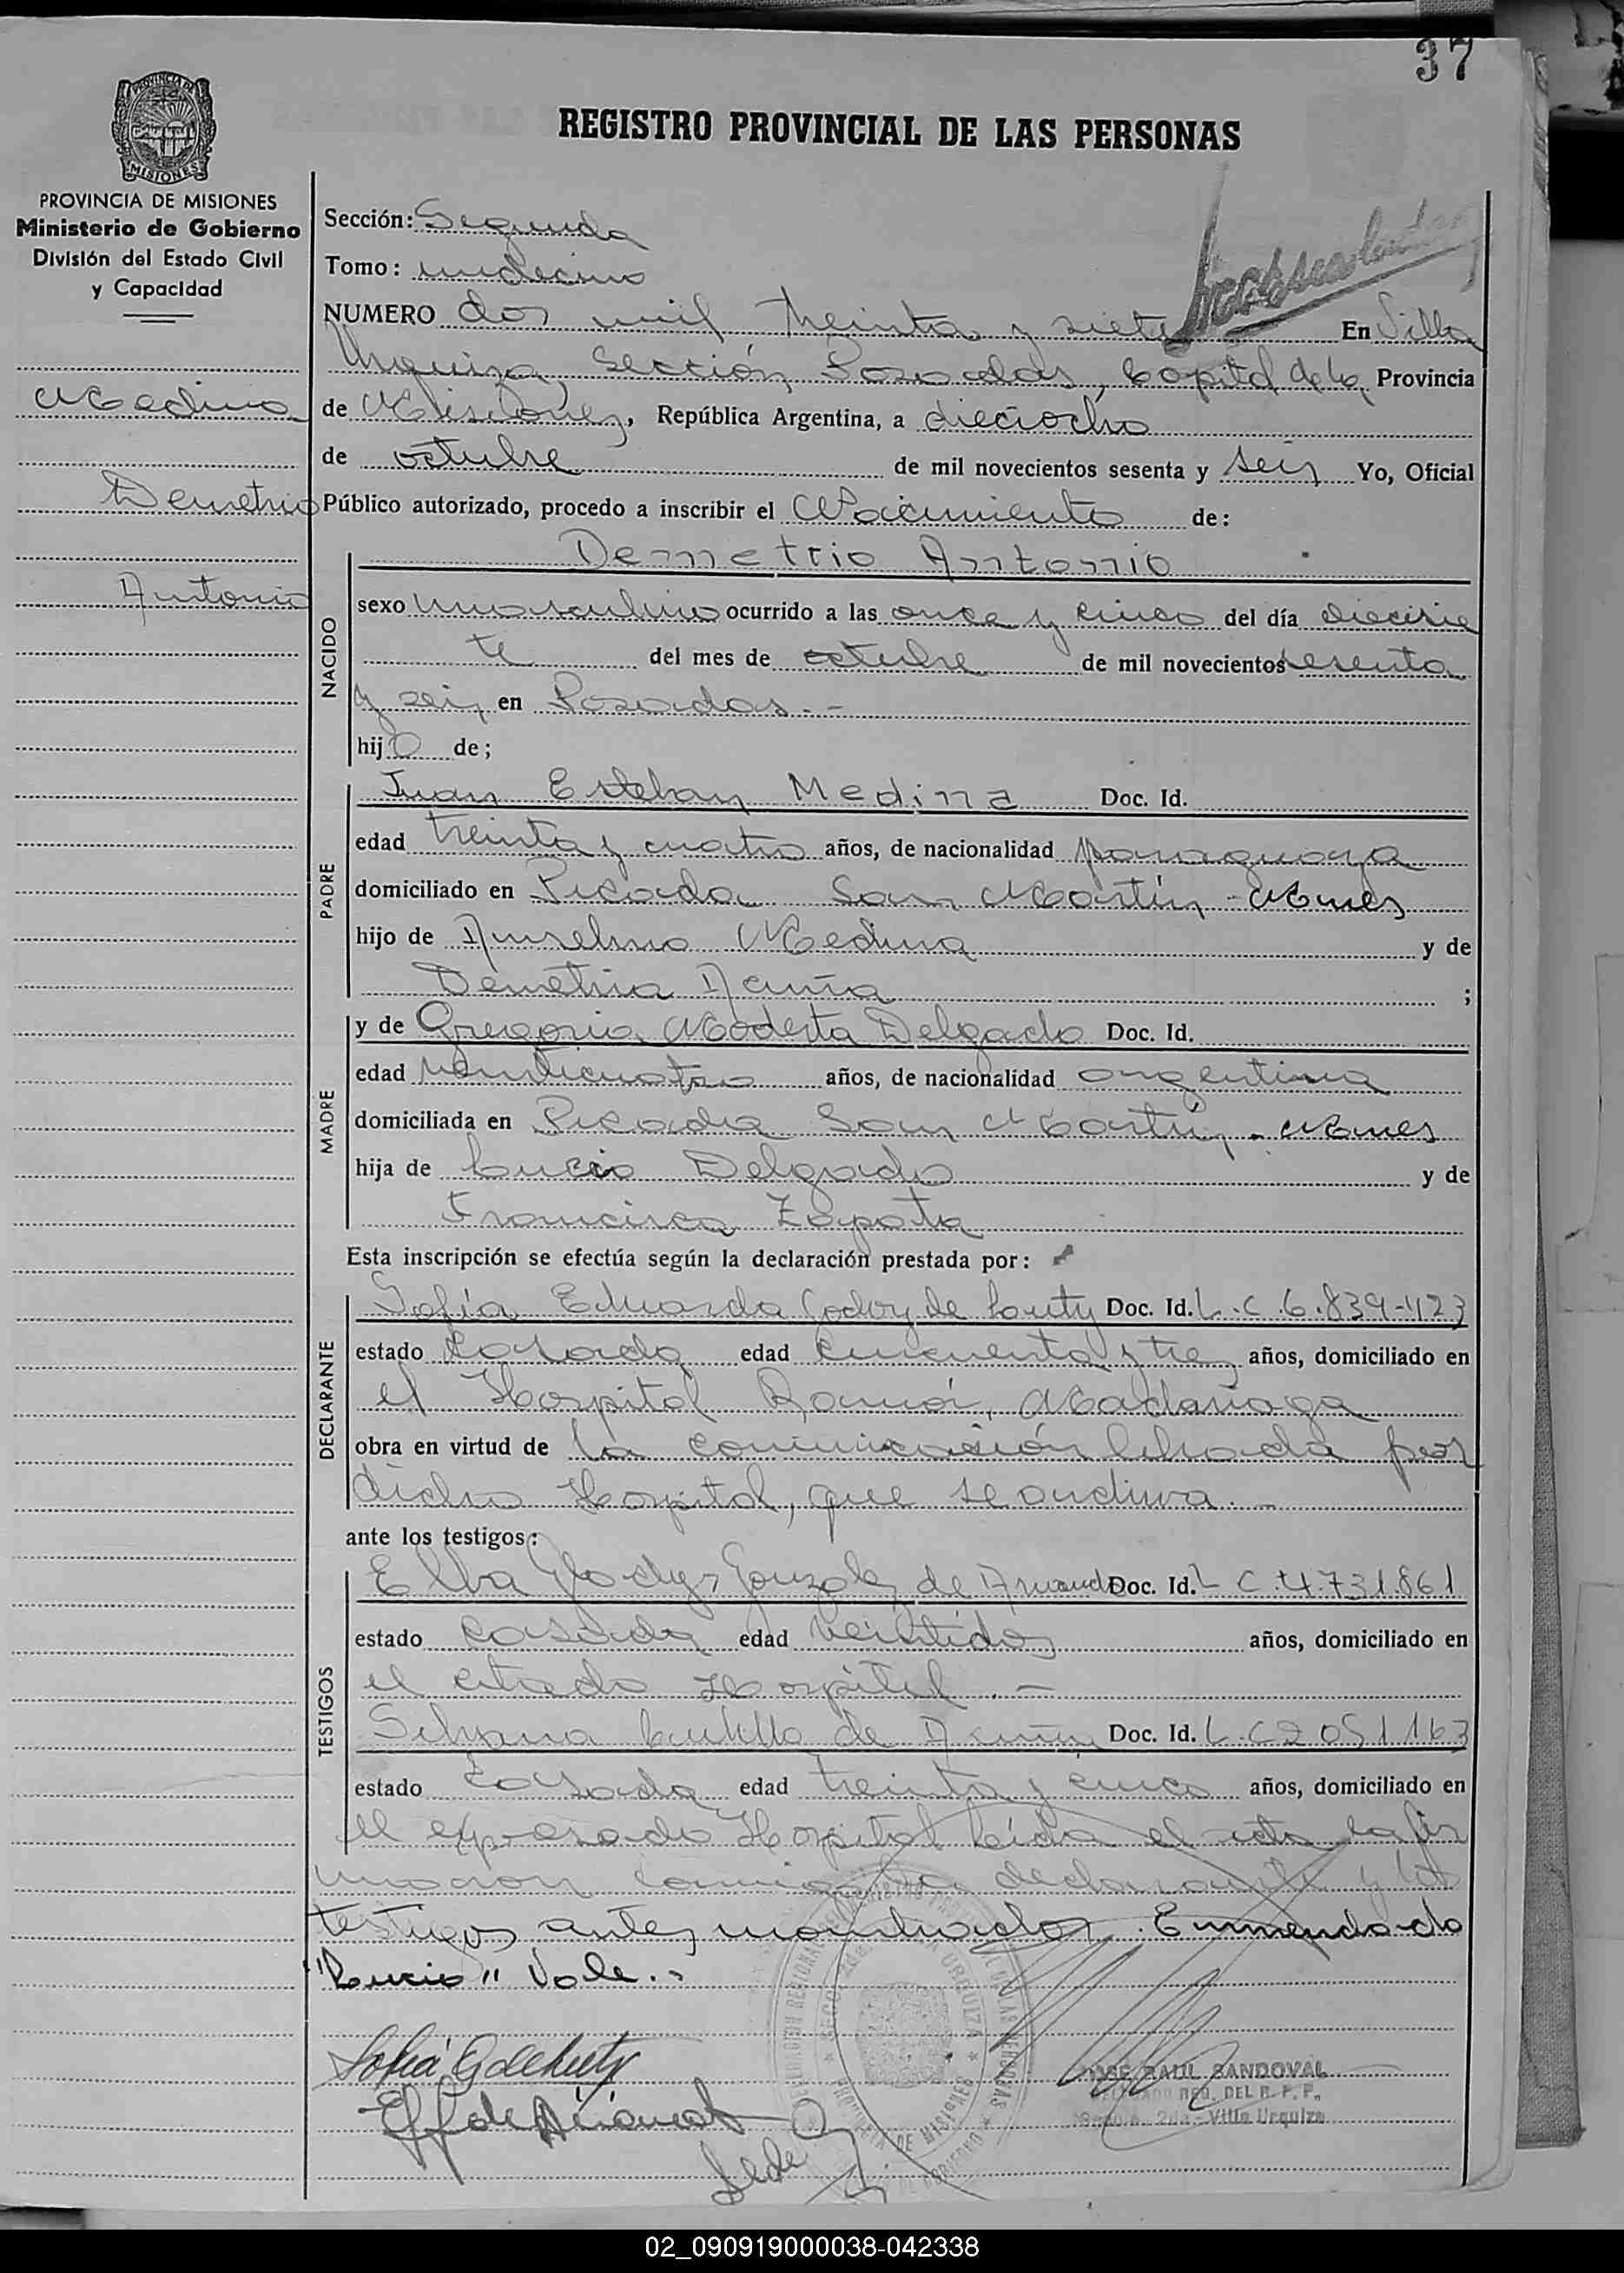 37
PROVINCIA DE
MISIONES
REGISTRO PROVINCIAL DE LAS PERSONAS
PROVINCIA DE MISIONES
Ministerio de Gobierno
División del Estado Civil
y Capacidad
Medina
Demetrio
Antonio
Sección: Segunda
Tomo: undecimo
NUMERO dos mil treinta y siete En Villa
Urquiza, Sección Posadas, Capital de la Provincia
de Misiones, República Argentina, a dieciocho
de octubre de mil novecientos sesenta y seis Yo, Oficial
Público autorizado, procedo a inscribir el Nacimiento de:
NACIDO
Demetrio Antonio
sexo masculino ocurrido a las once y cinco del día diecisie
te del mes de octubre de mil novecientos sesenta
y seis en Posadas.-
hijo de;
PADRE
Juan Esteban Medina Doc. Id.
edad treinta y cuatro años, de nacionalidad paraguaya
domiciliado en Picada San Martín - Mnes
hijo de Anselmo Medina y de
Demetria ;
MADRE
y de Gregoria Modesta Delgado Doc. Id.
edad veinticuatro años, de nacionalidad argentina
domiciliada en Picada San Martín - Mnes
hija de Lucio Delgado y de
Francisca Zapata
Esta inscripción se efectúa según la declaración prestada por:
DECLARANTE
Sofía Eduarda Godoy de Doc. Id. L.C 6.839.423
estado Casada edad cincuenta y tres años, domiciliado en
el Hospital Ramón Madariaga
obra en virtud de la comunicación librada por
dicho Hospital, que se archiva.-
ante los testigos:
TESTIGOS
Elba Gladys González de Doc. Id. L C. 4.731.861
estado casada edad veintidos años, domiciliado en
el citado Hospital.-
Silvana de Doc. Id. L.C 2 051 163
estado Casada edad treinta y cinco años, domiciliado en
el expresado Hospital leída el acta la fir
maron conmigo la declarante y los
testigos antes nombrados. Enmendado
"Lucio" Vale.-
JOSE RAUL SANDOVAL
REG. DEL R. P. P.
2da - Villa Urquiza
02_090919000038-042338